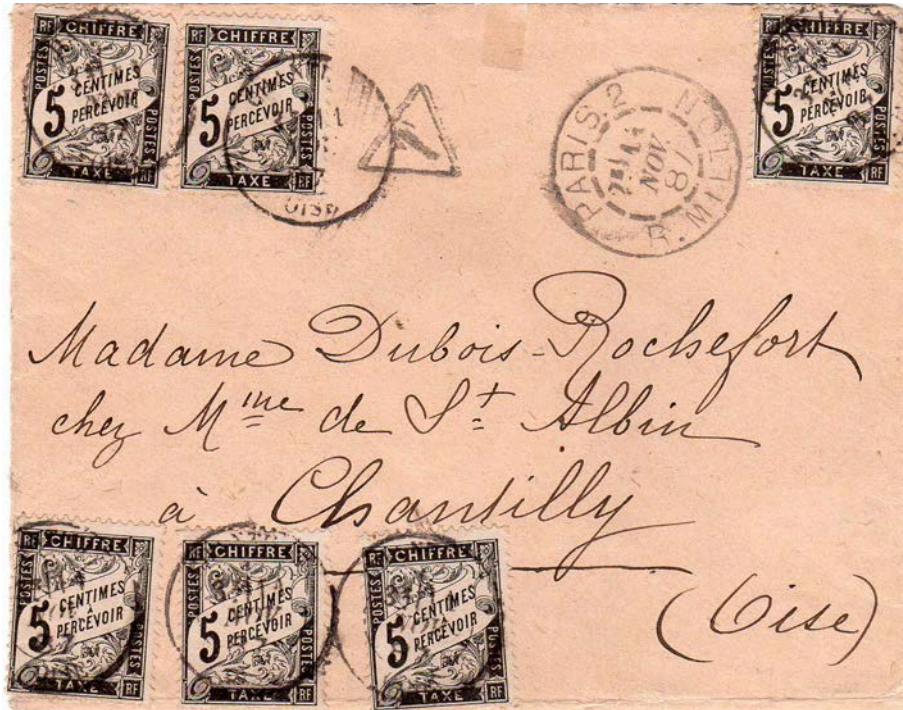 RF CHIFFRE
POSTES 5 CENTIMES
À PERCEVOIR POSTES
TAXE RF
RF CHIFFRE
POSTES 5 CENTIMES
À PERCEVOIR POSTES
TAXE RF
OISE
PARIS.2 R. MILTON
NOV.
87
RF CHIFFRE
POSTES 5 CENTIMES
À PERCEVOIR POSTES
TAXE RF
Madame Dubois-Rochefort
chez Mme de St Albin
à Chantilly
(Oise)
RF CHIFFRE
POSTES 5 CENTIMES
À PERCEVOIR POSTES
TAXE RF
RF CHIFFRE
POSTES 5 CENTIMES
À PERCEVOIR POSTES
TAXE RF
RF CHIFFRE
POSTES 5 CENTIMES
À PERCEVOIR POSTES
TAXE RF